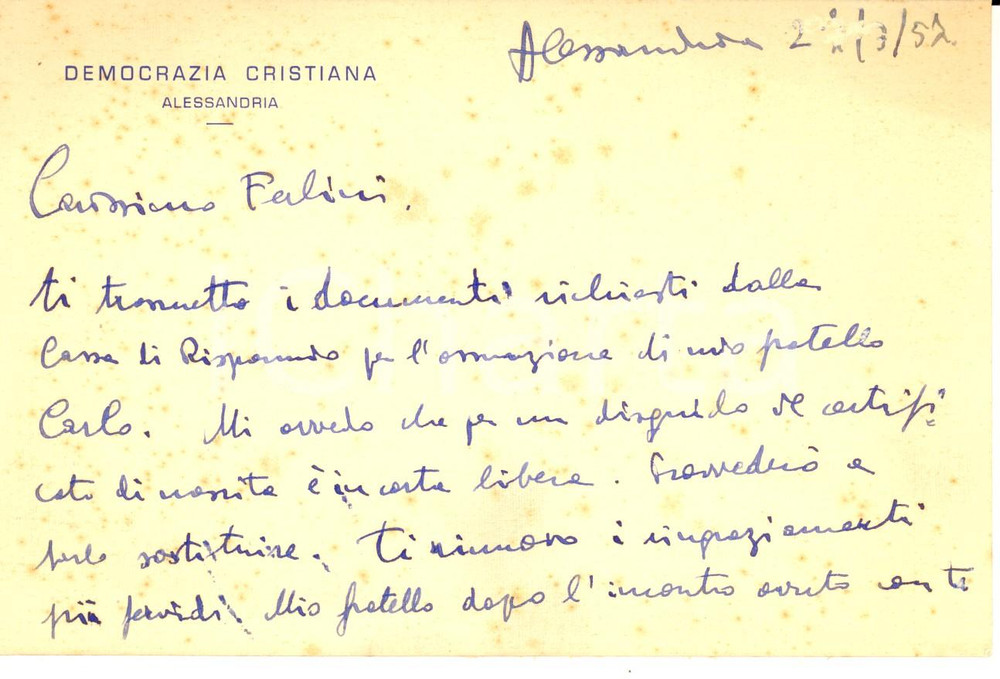 Alessandria 2 /3/52.
DEMOCRAZIA CRISTIANA
ALESSANDRIA
Carissimo Falini.
ti trasmetto i documenti richiesti dalla
Cassa di Risparmio per l'assunzione di mio fratello
Carlo. Mi avvedo che per un disguido il certifi-
cato di nascita è in carta libera. Provvederò a
farlo sostituire. Ti rinnovo i ringraziamenti
più fervidi. Mio fratello dopo l'incontro avuto con te